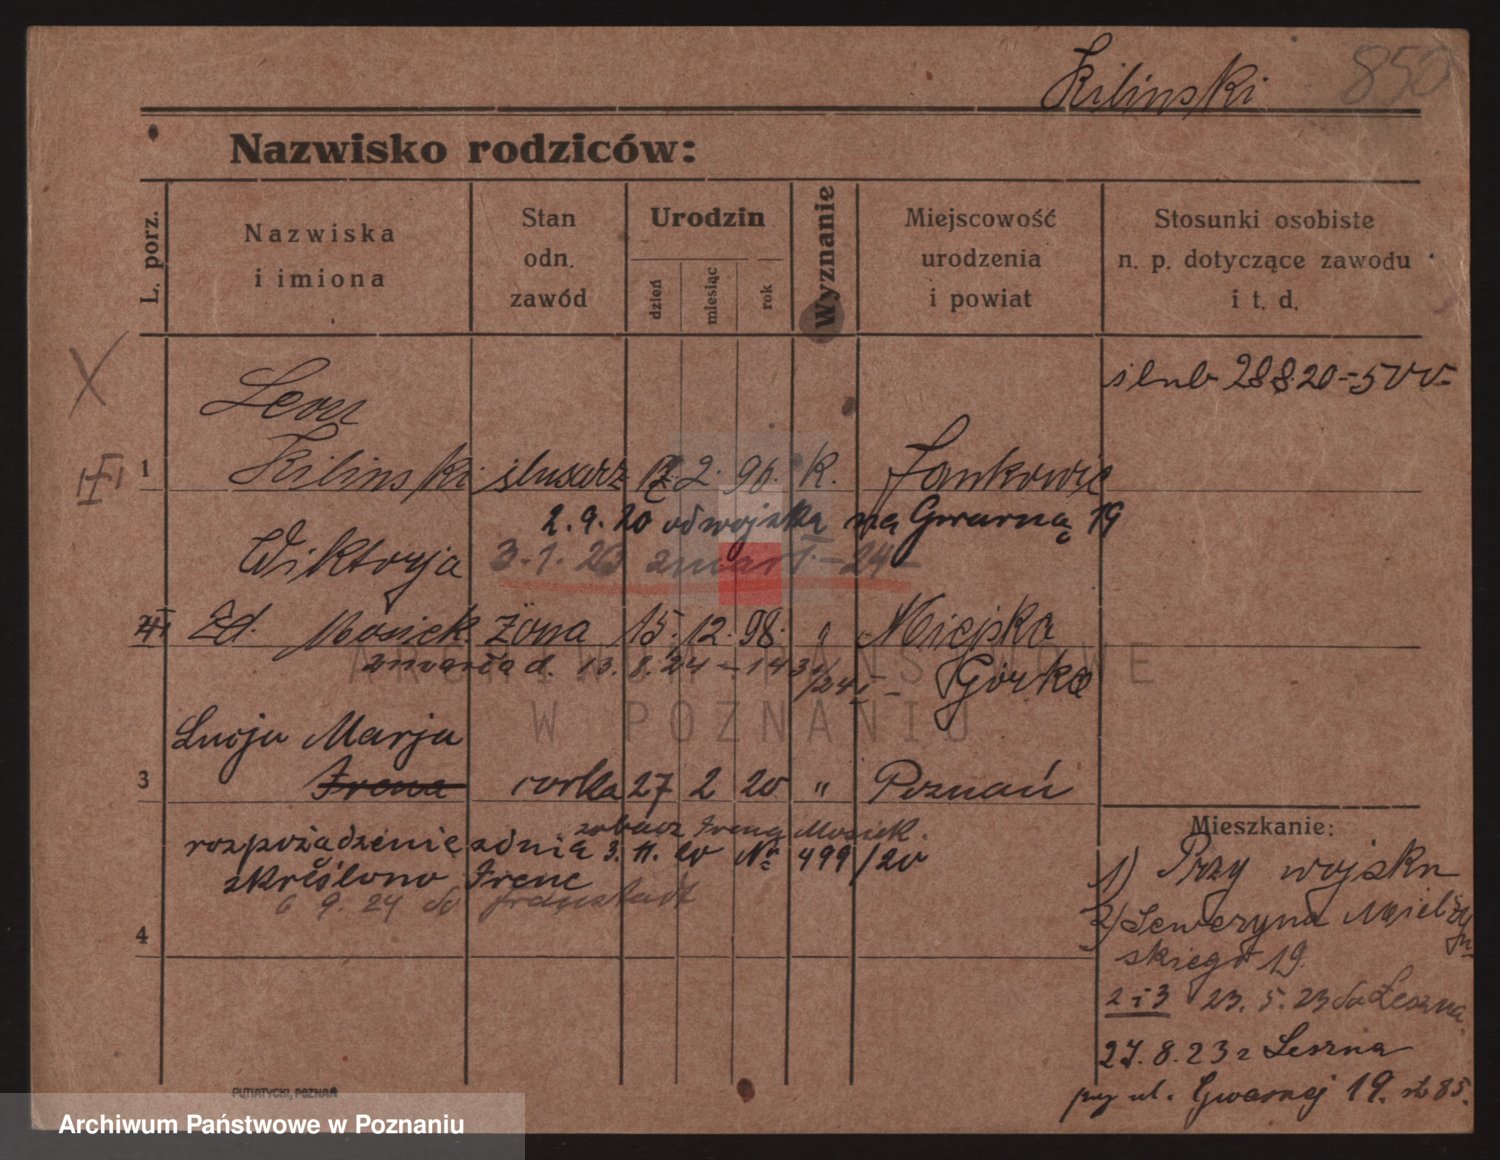 Kilinski 850
Nazwisko rodziców:
L. porz.
Nazwiska
i imiona
Stan
odn.
zawód
Urodzin
dzień
miesiąc
rok
Wyznanie
Miejscowość
urodzenia
i powiat
Stosunki osobiste
n. p. dotyczące zawodu
i t. d.
ślub 28 8. 20 -
X
Leon
1 Kilinski ślusarz 2. 96. K. Jankowic
2. 9. 20 od wojska na Gwarną 19
Wiktorja 3. 1. 23 - 24 -
Zd. Mosiek żona 15. 12. 98. " Miejska
zmarła d. 13. 8. 24 - Górka
ARCHIWUM PAŃSTWOWE
W POZNANIU
Lucja Marja
3 Irena córka 27 2 20 " Poznań
zobacz Irena Mosiek.
rozporządzenie z dnia 3. 11. 20 Nr 499/20
skréślono Irene
6 9. 24 do Fraustadt
4
Mieszkanie:
1) Przy wojsku
2) Seweryna Mielżyń
skiego 19.
2 i 3 23. 5. 23 do Leszna.
27. 8. 23 z Leszna
przy ul. Gwarnej 19. 85.
PUTIATYCKI, POZNAŃ
Archiwum Państwowe w Poznaniu